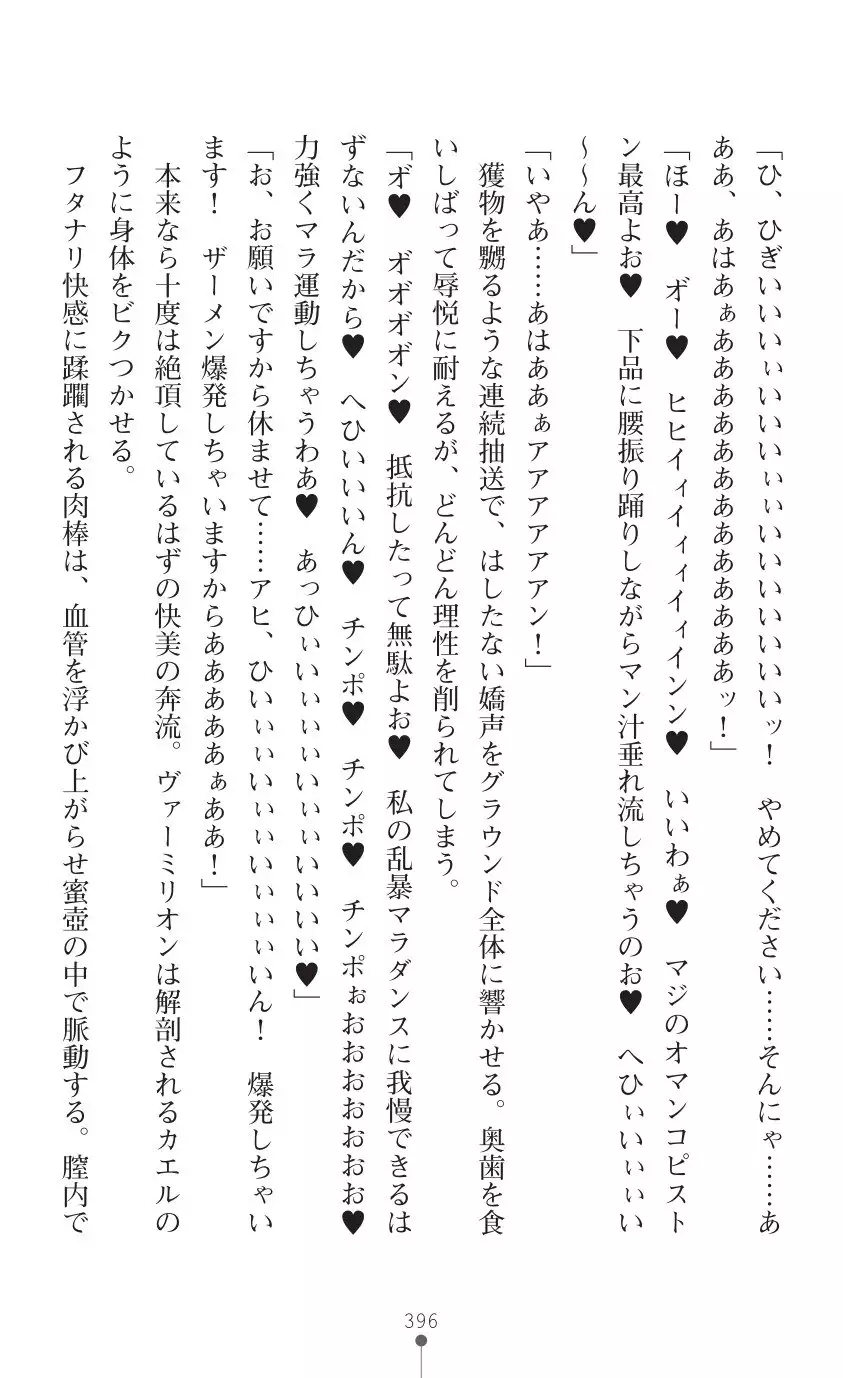 「ひ、ひぎいいいぃいいいぃぃいいいいいいいッ！　やめてください……そんにゃ……あ
ああ、あはあぁあああああああああああああッ！」
「ほー♥　オ゛ー♥　ヒヒイィイィィイィインン♥　いいわぁ♥　マジのオマンコピスト
ン最高よお♥　下品に腰振り踊りしながらマン汁垂れ流しちゃうのお♥　へひぃいぃぃい
～～ん♥」
「いやあ……あはああぁアアアアアアン！」
　獲物を嬲るような連続抽送で、はしたない嬌声をグラウンド全体に響かせる。奥歯を食
いしばって辱悦に耐えるが、どんどん理性を削られてしまう。
「オ゛♥　オ゛オ゛オ゛オ゛ン♥　抵抗したって無駄よお♥　私の乱暴マラダンスに我慢できるは
ずないんだから♥　へひいいいん♥　チンポ♥　チンポ♥　チンポぉおおおおおおお♥
力強くマラ運動しちゃうわあ♥　あっひぃいぃぃいぃぃいいいい♥」
「お、お願いですから休ませて……アヒ、ひいぃぃいぃぃいぃぃぃいん！　爆発しちゃい
ます！　ザーメン爆発しちゃいますからあああああぁああ！」
　本来なら十度は絶頂しているはずの快美の奔流。ヴァーミリオンは解剖されるカエルの
ように身体をビクつかせる。
　フタナリ快感に蹂躙される肉棒は、血管を浮かび上がらせ蜜壺の中で脈動する。膣内で
396